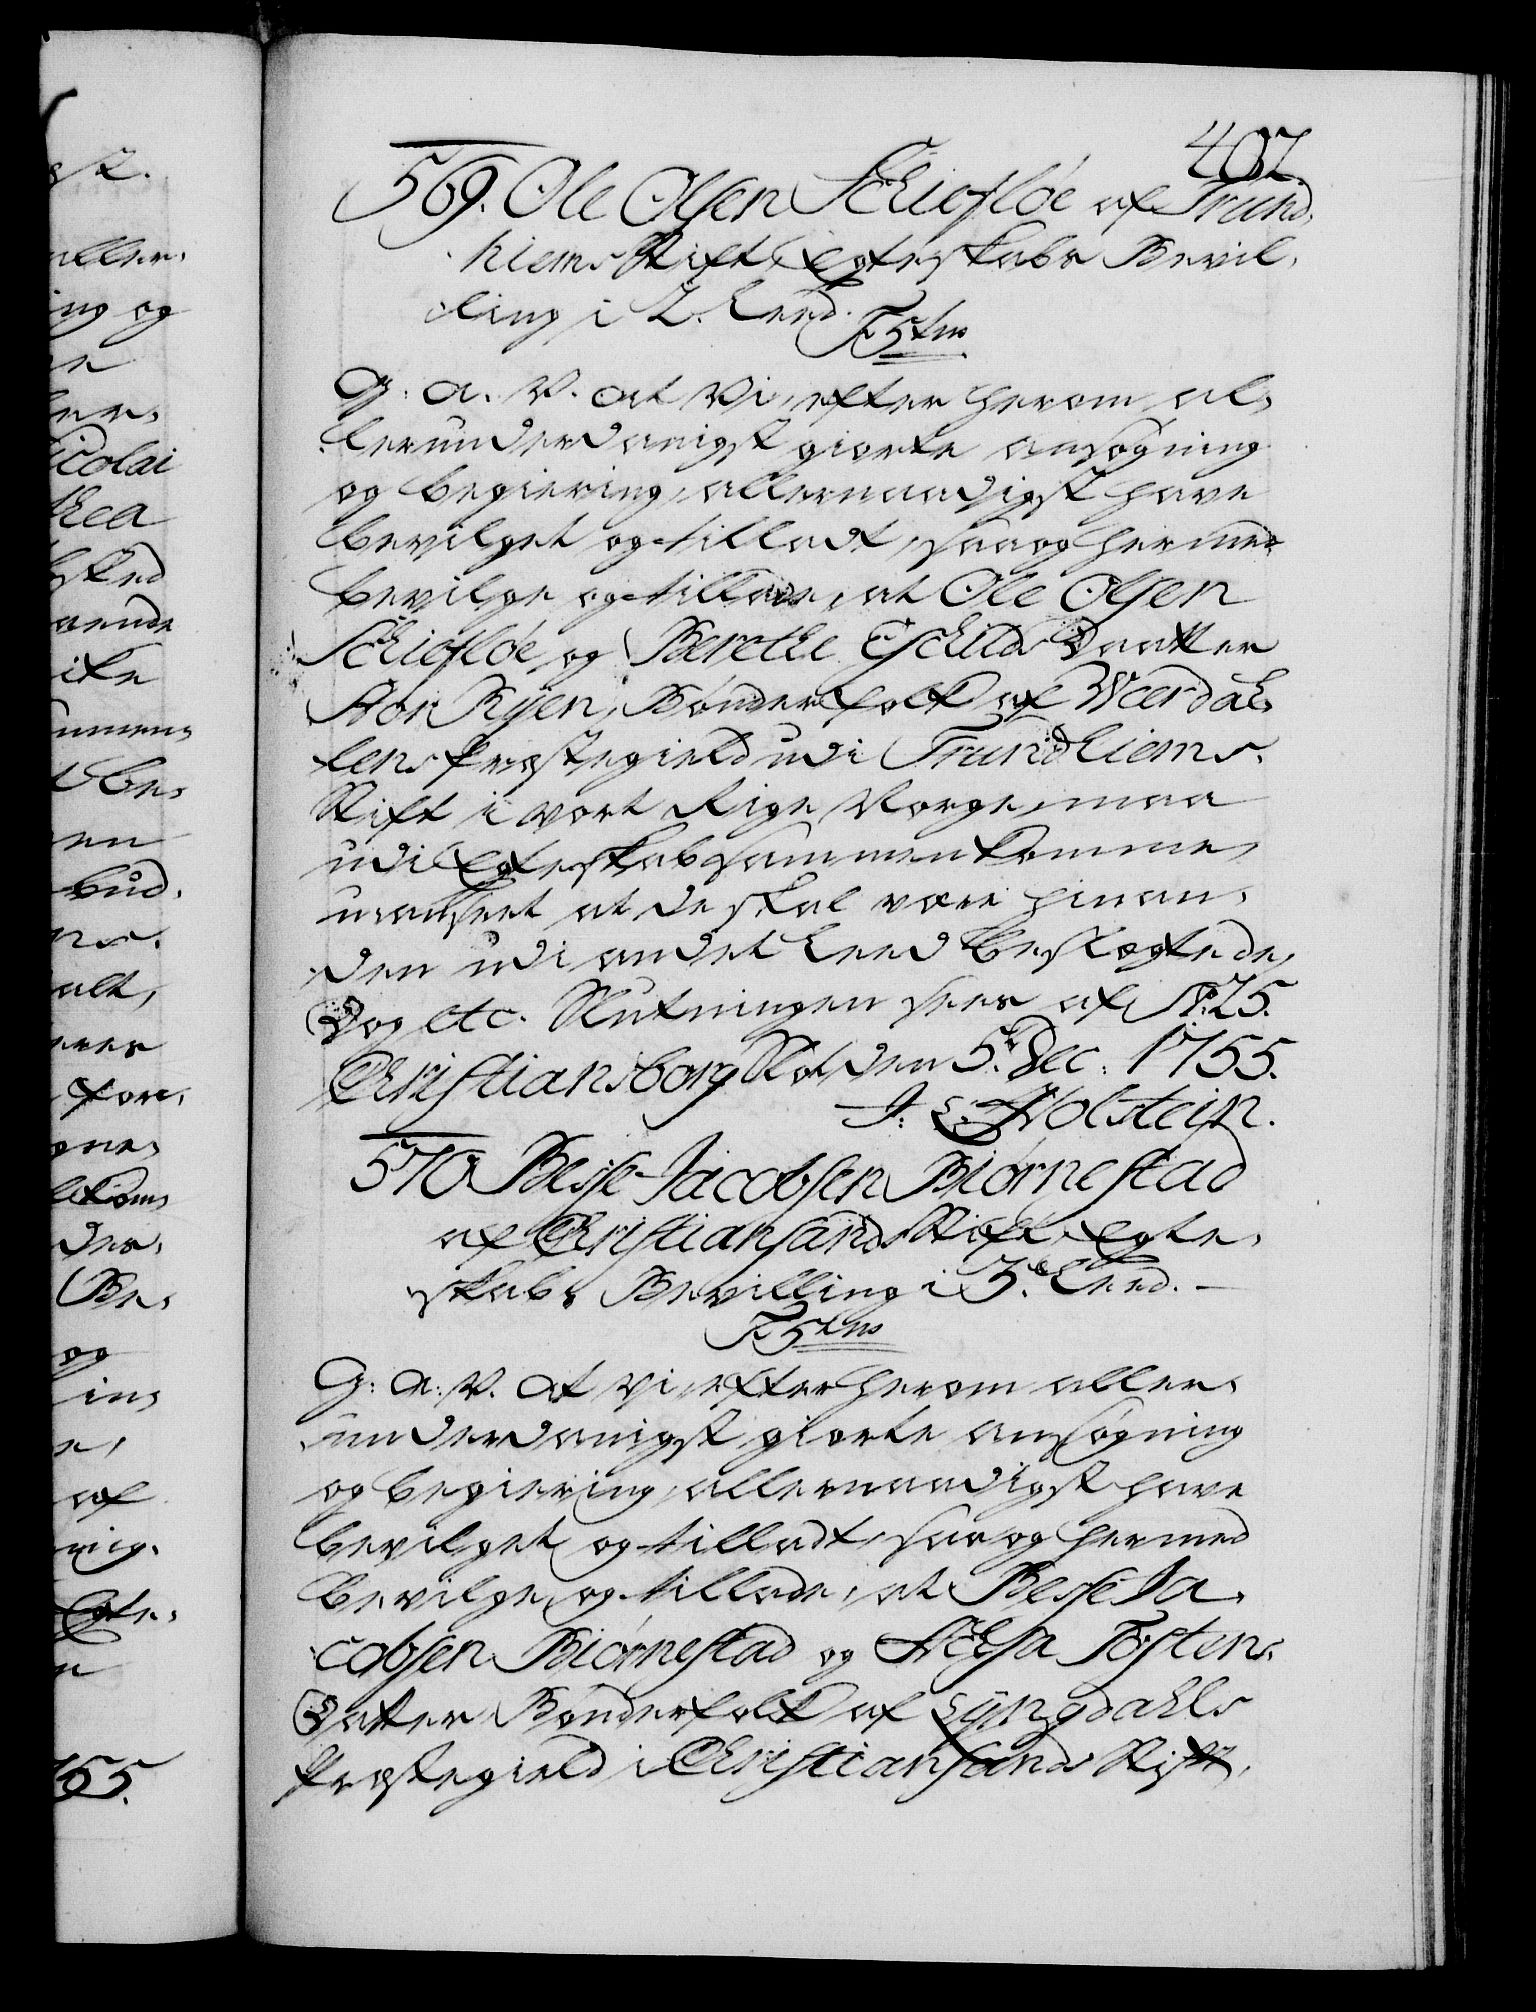 407
569. Ole Olsen Schiefløe af Trund,
hiems Stift Egteskabs Bevil,
ling i 2. Leed.
F 5tus
G. A. V. at Vi, efter herom al,
lerunderdanigst giorte ansøgning
og begiering, allernaadigst have
bevilget og tilladt, saa og hermed
bevilge og tillade, at Ole Olsen
Schiefløe og Berethe Eschilds Daatter
Stor Ryen, Bønderfolk af Værdah,
lens Præstegield udi Trundhiems
Stift i vort Rige Norge, maa
udi Egteskab sammenkomme,
uanseet at de skal være hinan,
den udi andet Leed beslægtede,
Dog etc. Slutningen sees af No. 25.
Christiansborg Slot den 5. Dec: 1755.
J. L. Holstein.
570. Besse Jacobsen Biørnestad
af Christiansands Stift Egte,
skabs Bevilling i 3. Leed.
F 5tus
G: A: V. at Vi, efter herom aller,
underdanigst giorte ansøgning
og begiering, allernaadigst have
bevilget og tilladt, saa og hermed
bevilge og tillade, at Besse Ja,
cobsen Biørnestad og Tostens
Datter Bønderfolk af Lyngdahls
Præstegield i Christiansands Stift,